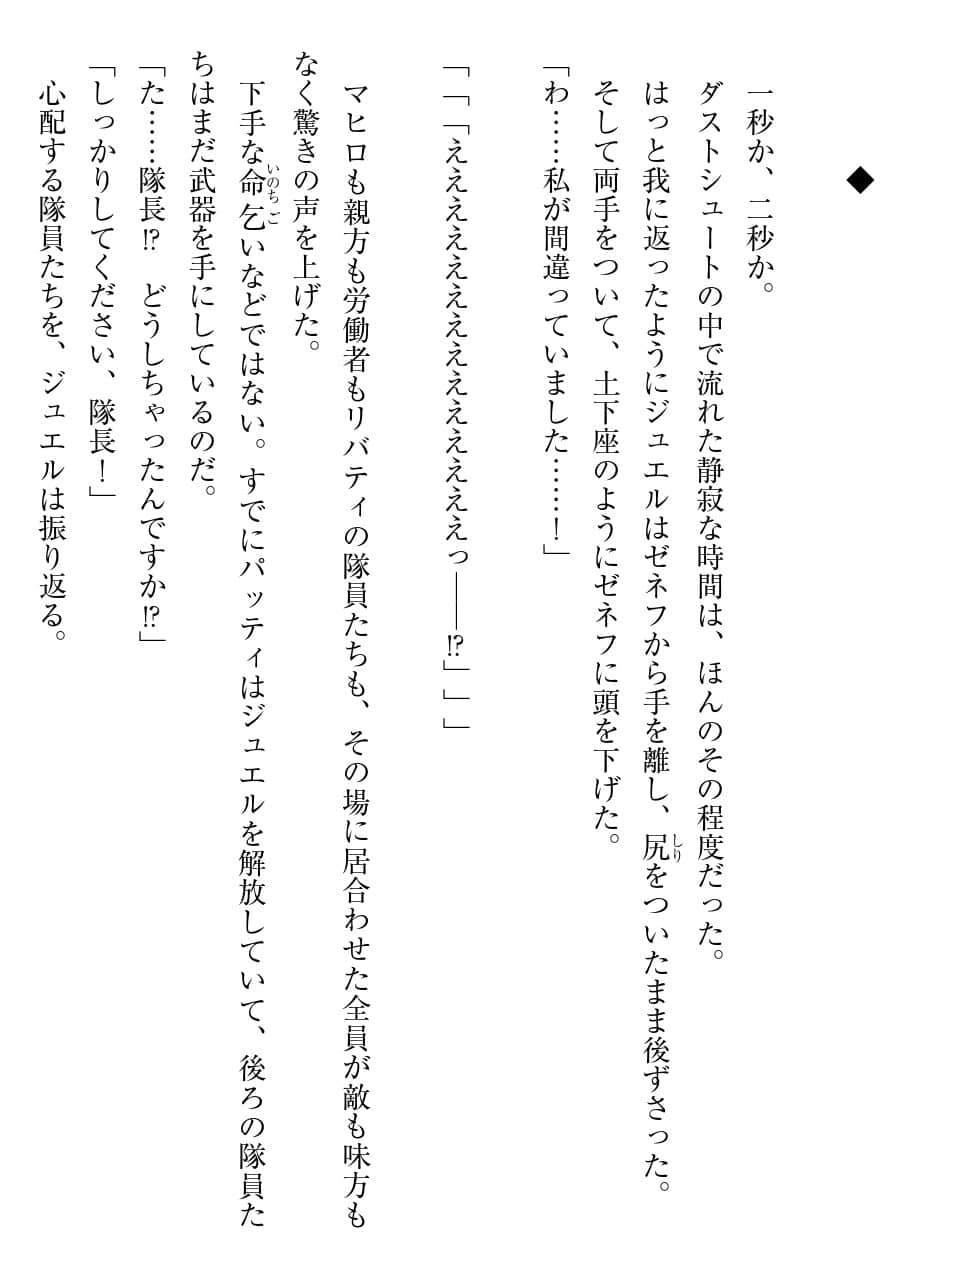 ◆
一秒か、二秒か。
ダストシュートの中で流れた静寂な時間は、ほんのその程度だった。
はっと我に返ったようにジュエルはゼネフから手を離し、尻をついたまま後ずさった。
そして両手をついて、土下座のようにゼネフに頭を下げた。
「わ……私が間違っていました……！」
「「「ええええええええええええええっ――⁉」」」
マヒロも親方も労働者もリバティの隊員たちも、その場に居合わせた全員が敵も味方も
なく驚きの声を上げた。
下手な命乞いなどではない。すでにパッティはジュエルを解放していて、後ろの隊員た
ちはまだ武器を手にしているのだ。
「た……隊長⁉　どうしちゃったんですか⁉」
「しっかりしてください、隊長！」
心配する隊員たちを、ジュエルは振り返る。